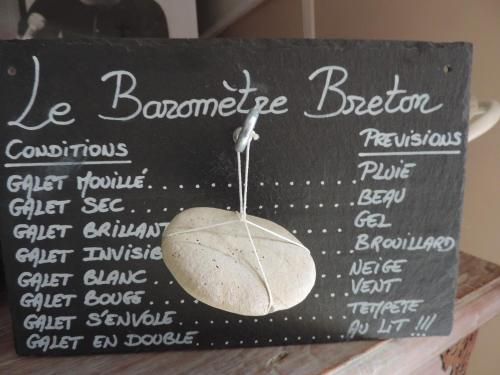 Le Baromètre Breton
CONDITIONS PREVISIONS
GALET MOUILLÉ PLUIE
GALET SEC BEAU
GALET BRILLANT GEL
GALET INVISIB BROUILLARD
GALET BLANC NEIGE
GALET BOUGE VENT
GALET S'ENVOLE TEMPETE
GALET EN DOUBLE AU LIT !!!